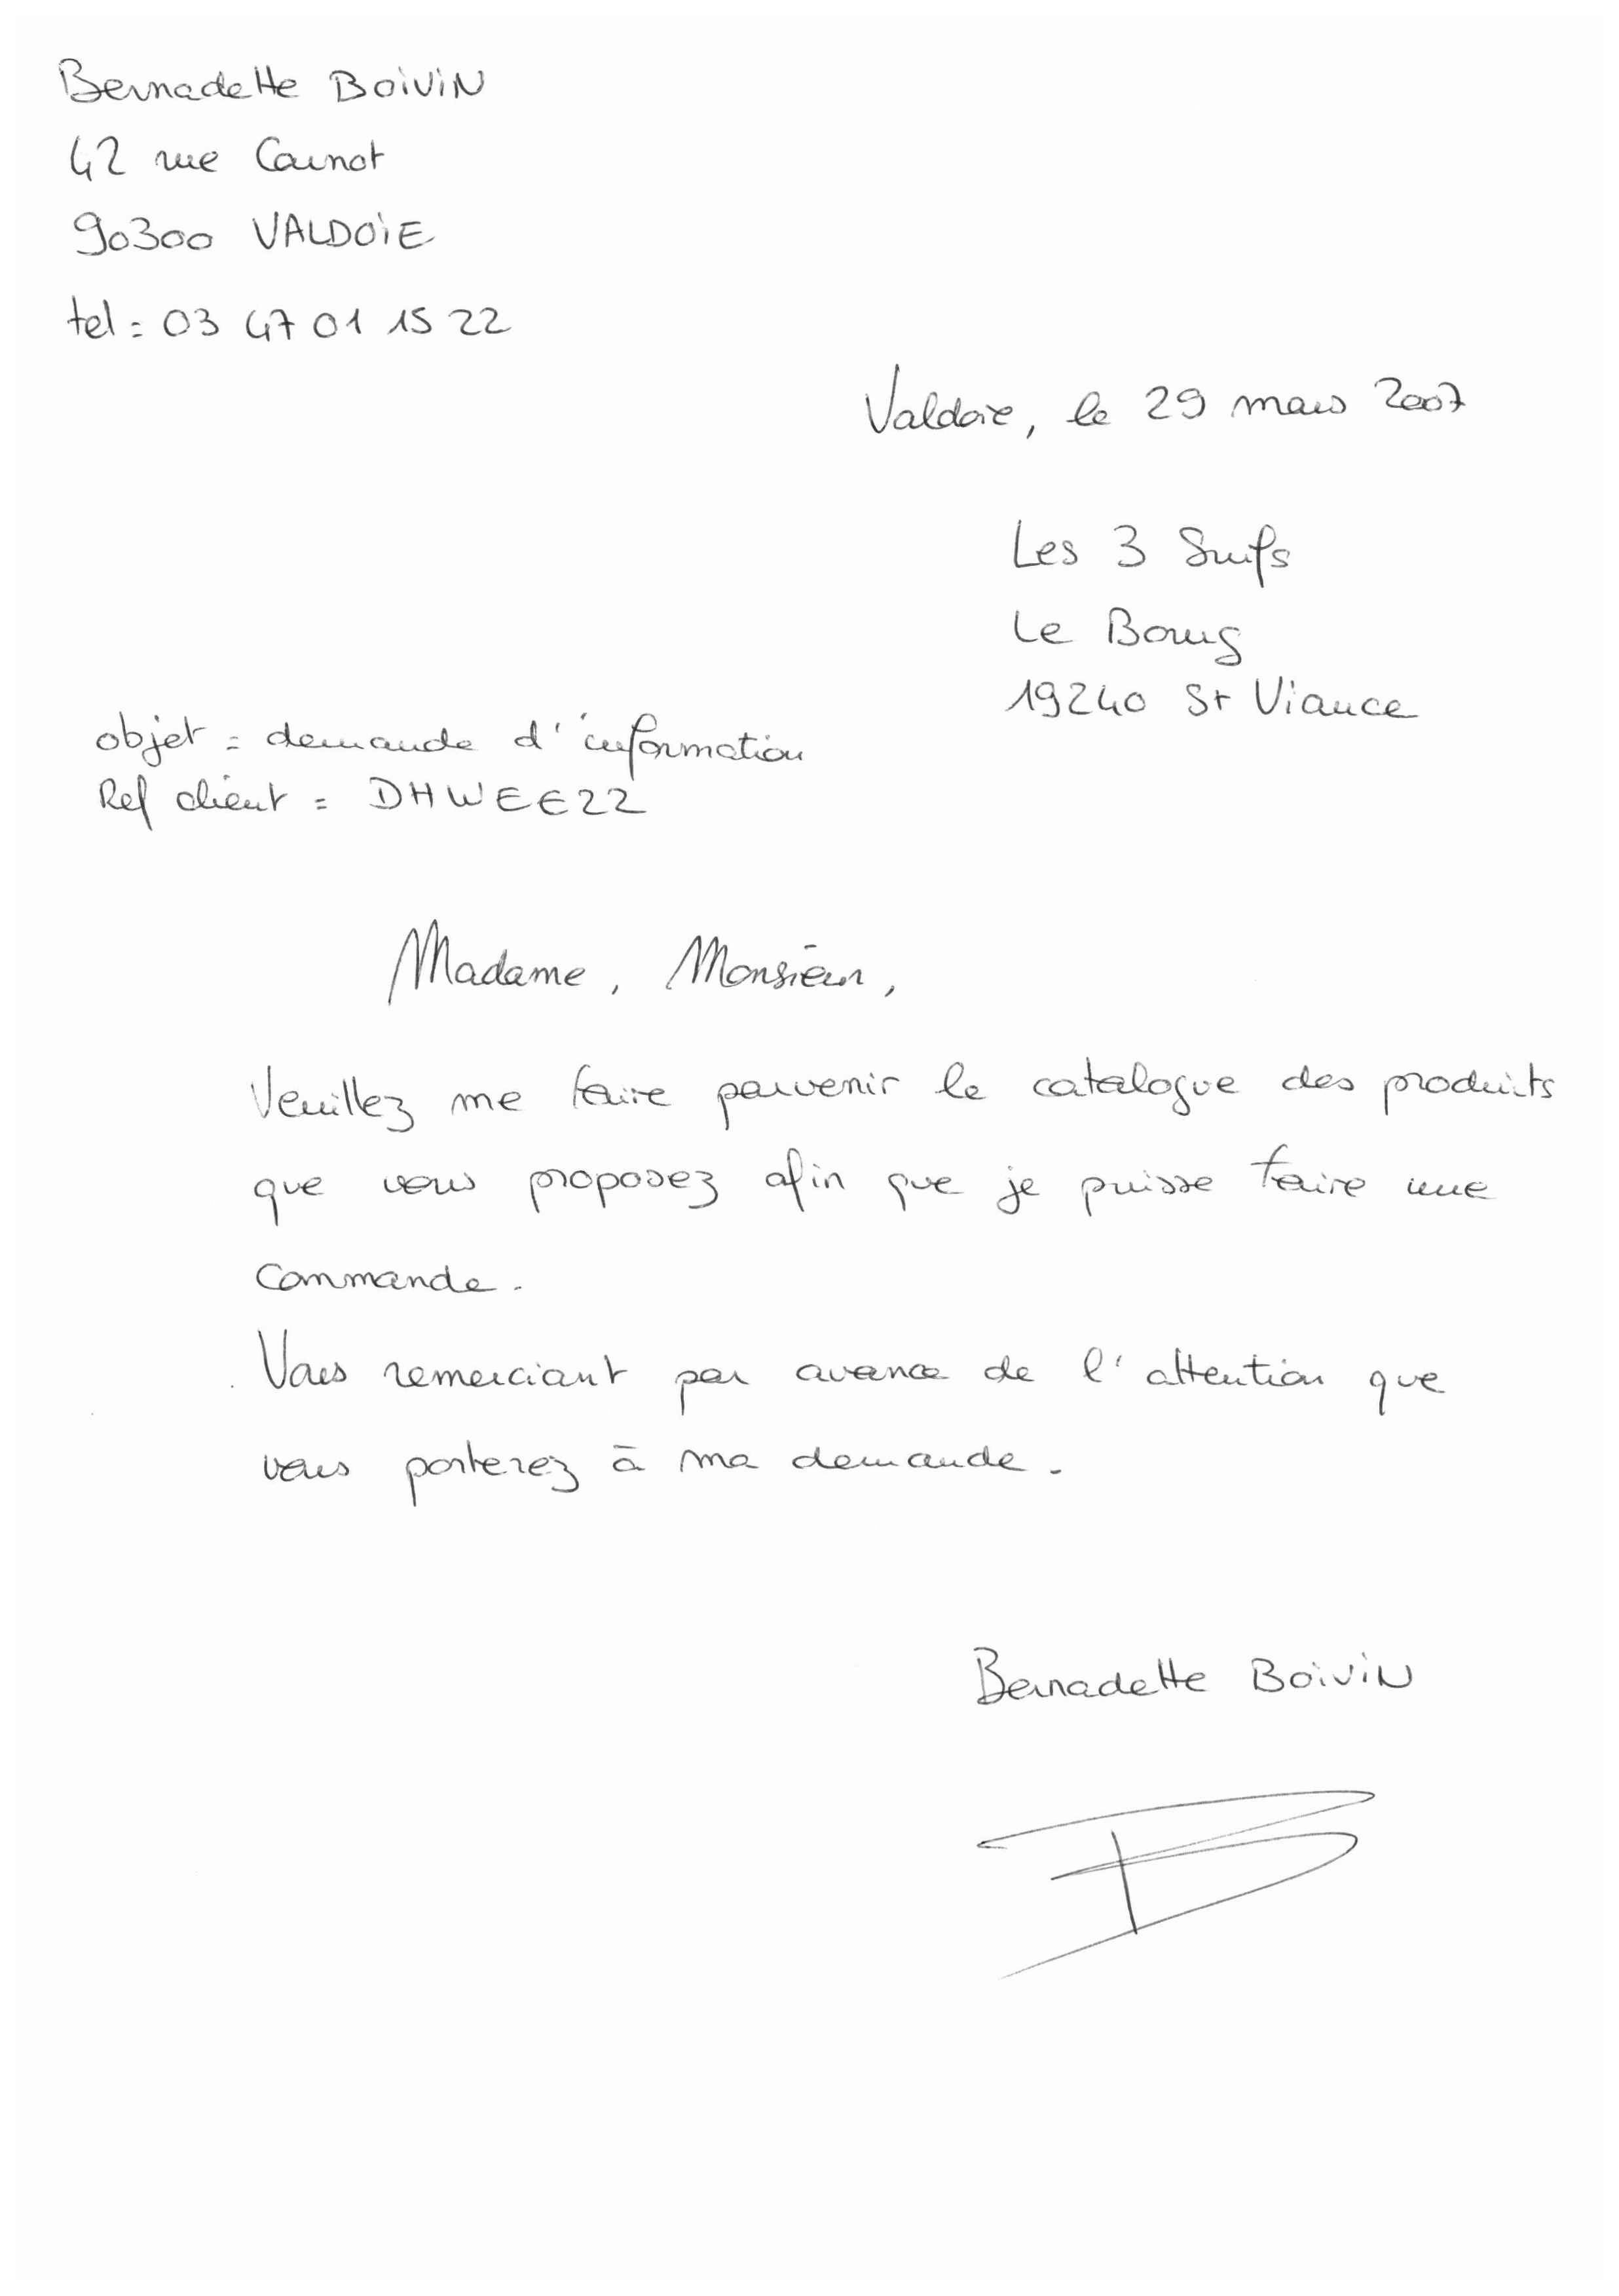 Bernadette BOIVIN
42 rue Carnot
90300 VALDOIE
tel : 03 47 01 15 22
Valdoie, le 29 mars 2007
Les 3 Suifs
Le Bourg
19240 St Viance
objet : demande d'information
Ref client : DHWEE22
Madame, Monsieur,
Veuillez me faire parvenir le catalogue des produits
que vous proposez afin que je puisse faire une
commande.
Vous remerciant par avance de l'attention que
vous porterez à ma demande.
Bernadette BOIVIN